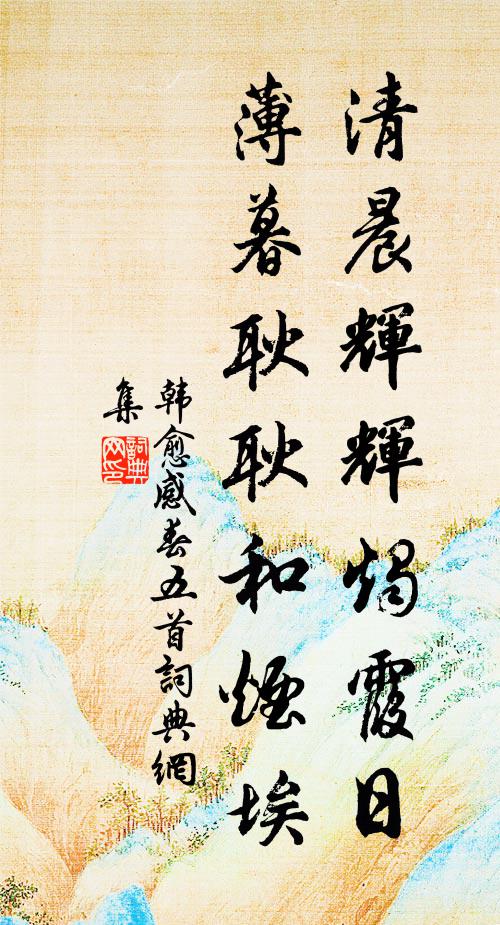 清晨輝輝燭霞日
薄暮耿耿和煙埃
韩愈感春五首詞典網
集
詞典网印